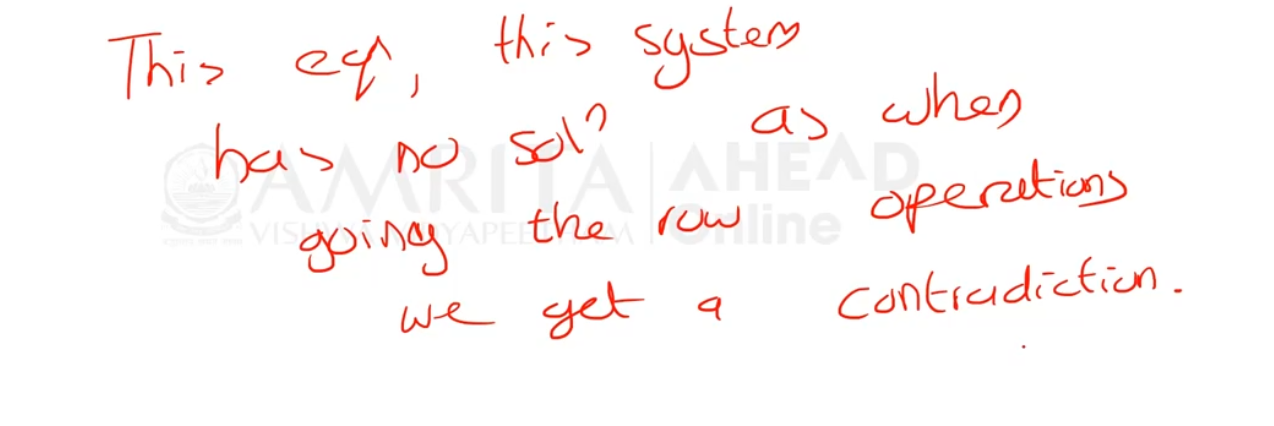 This eqn, this system
has no soln as when
going the row operations
we get a contradiction.
AMRITA AHEAD
VISHWA VIDYAPEETHAM Online